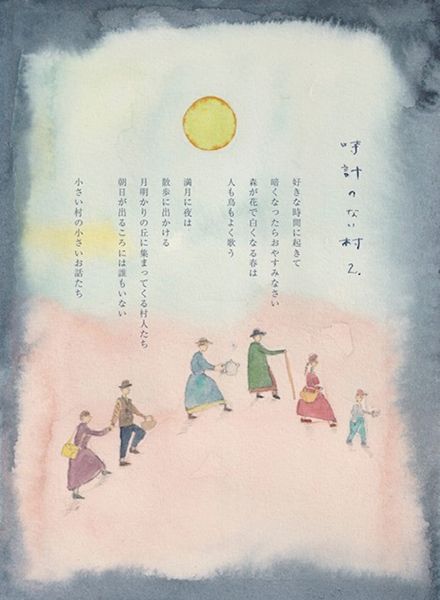 時計のない村 2.
好きな時間に起きて
暗くなったらおやすみなさい
森が花で白くなる春は
人も鳥もよく歌う
満月に夜は
散歩に出かける
月明かりの丘に集まってくる村人たち
朝日が出るころには誰もいない
小さい村の小さいお話たち